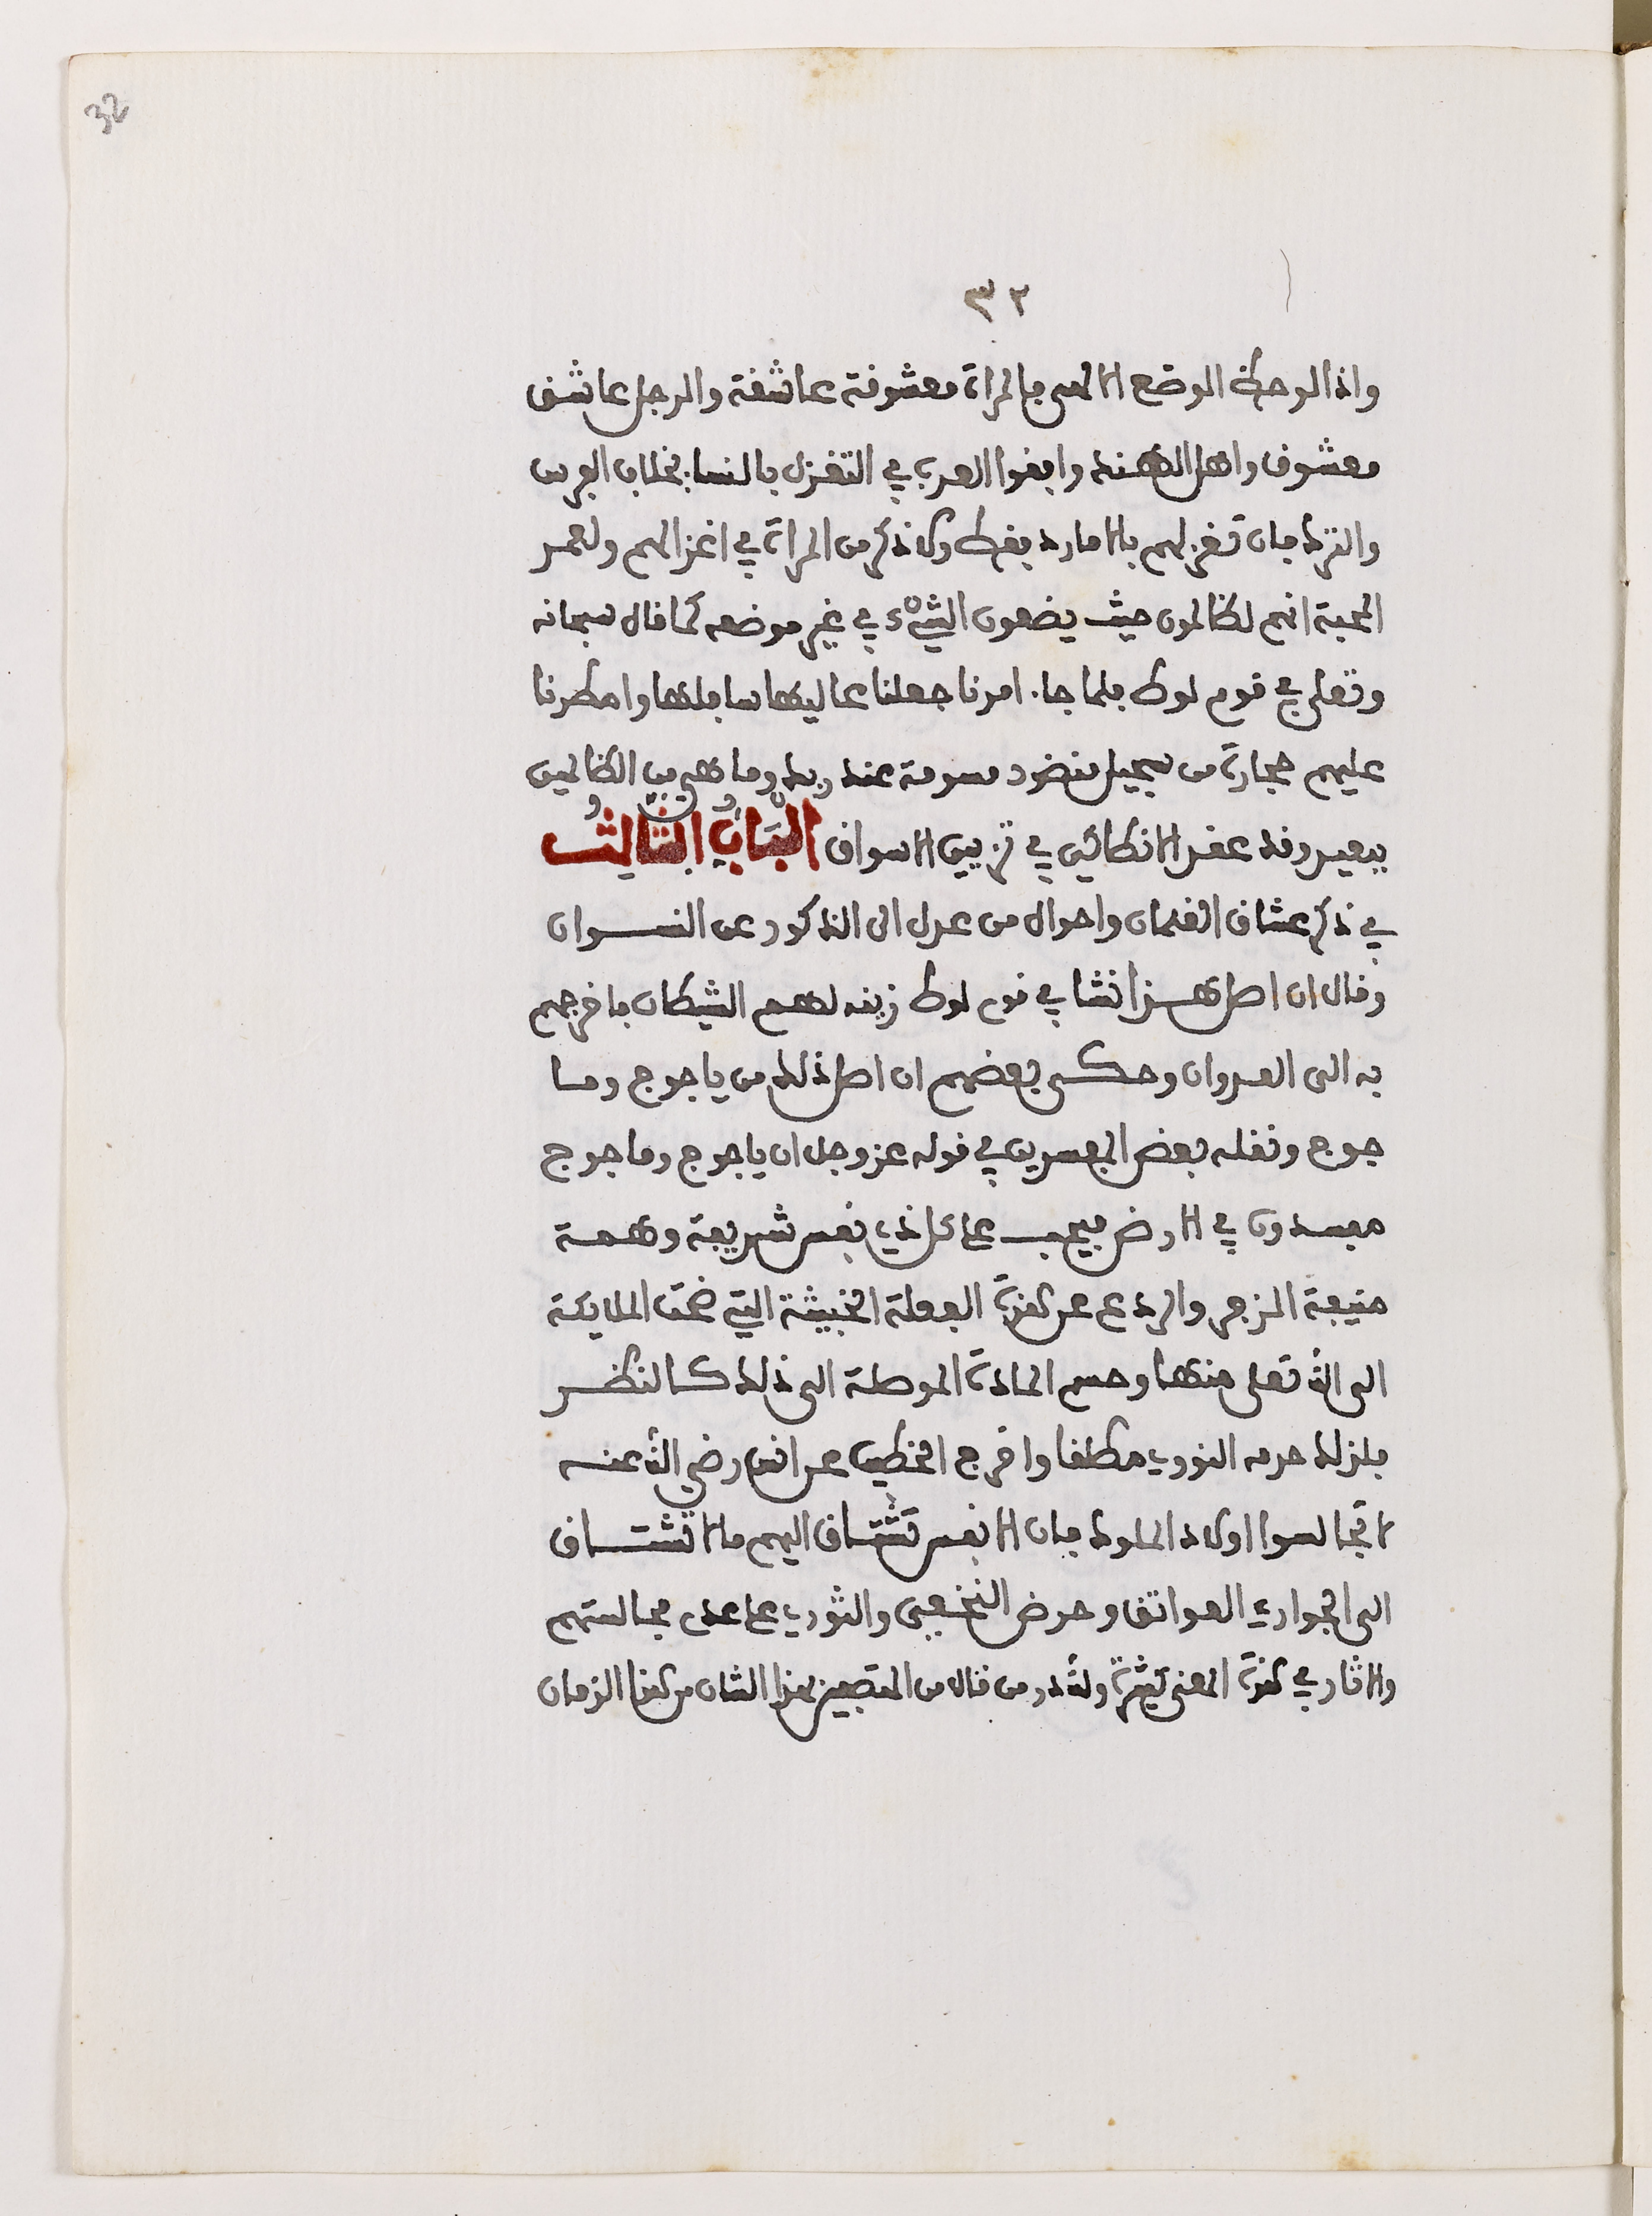 32
٣٢
واذا لوحظ الوضع الالهي فالمراة معشوقة عاشقة والرجل عاشق
معشوق واهل الهند وافقوا العرب في التغزل بالنسا بخلاف الفرس
والترك فان تغزلهم بالامارد فقط ولا ذكر من المراة في اغزالهم ولعمر
المحبة انهم لظالمون حيث يضعون الشيء في غير موضعه كما قال سبحانه
وتعلى في قوم لوط فلما جا امرنا جعلنا عاليها سافلها وامطرنا
عليهم حجارة من سجيل منضود مسومة عند ربك وما هي من الظالمين
ببعيد وقد عقد الانطاكي في تزيين الاسواق الباب الثالث
في ذكر عشاق الغلمان واحوال من عدل الى الذكور عن النسوان
وقال ان اصل هذا نشا في قوم لوط زينه لهم الشيطان فاخرجهم
به الى العدوان وحكى بعضهم ان اصل ذلك من ياجوج وما
جوج ونقله بعض المفسرين في قوله عز وجل ان ياجوج وماجوج
مفسدون في الارض فيجب على كل ذي نفس شريفة وهمة
منيعة الزجر والردع عن هذه الفعلة الخبيثة التي ضجت الملايكة
الى الله تعلى منها وحسم المادة الموصلة الى ذلك كالنظر
فلذلك حرمه النووي مطلقا واخرج الخطيب عن انس رضي الله عنه
لا تجالسوا اولاد الملوك فان الانفس تشتاق اليهم ما لا تشتاق
الى الجواري العواتق وحرض النخعي والثوري على عدم مجالستهم
والاثار في هذه المعنى كثيرة ولله در من قال من المتصفين بهذا الشان من هذا الزمان